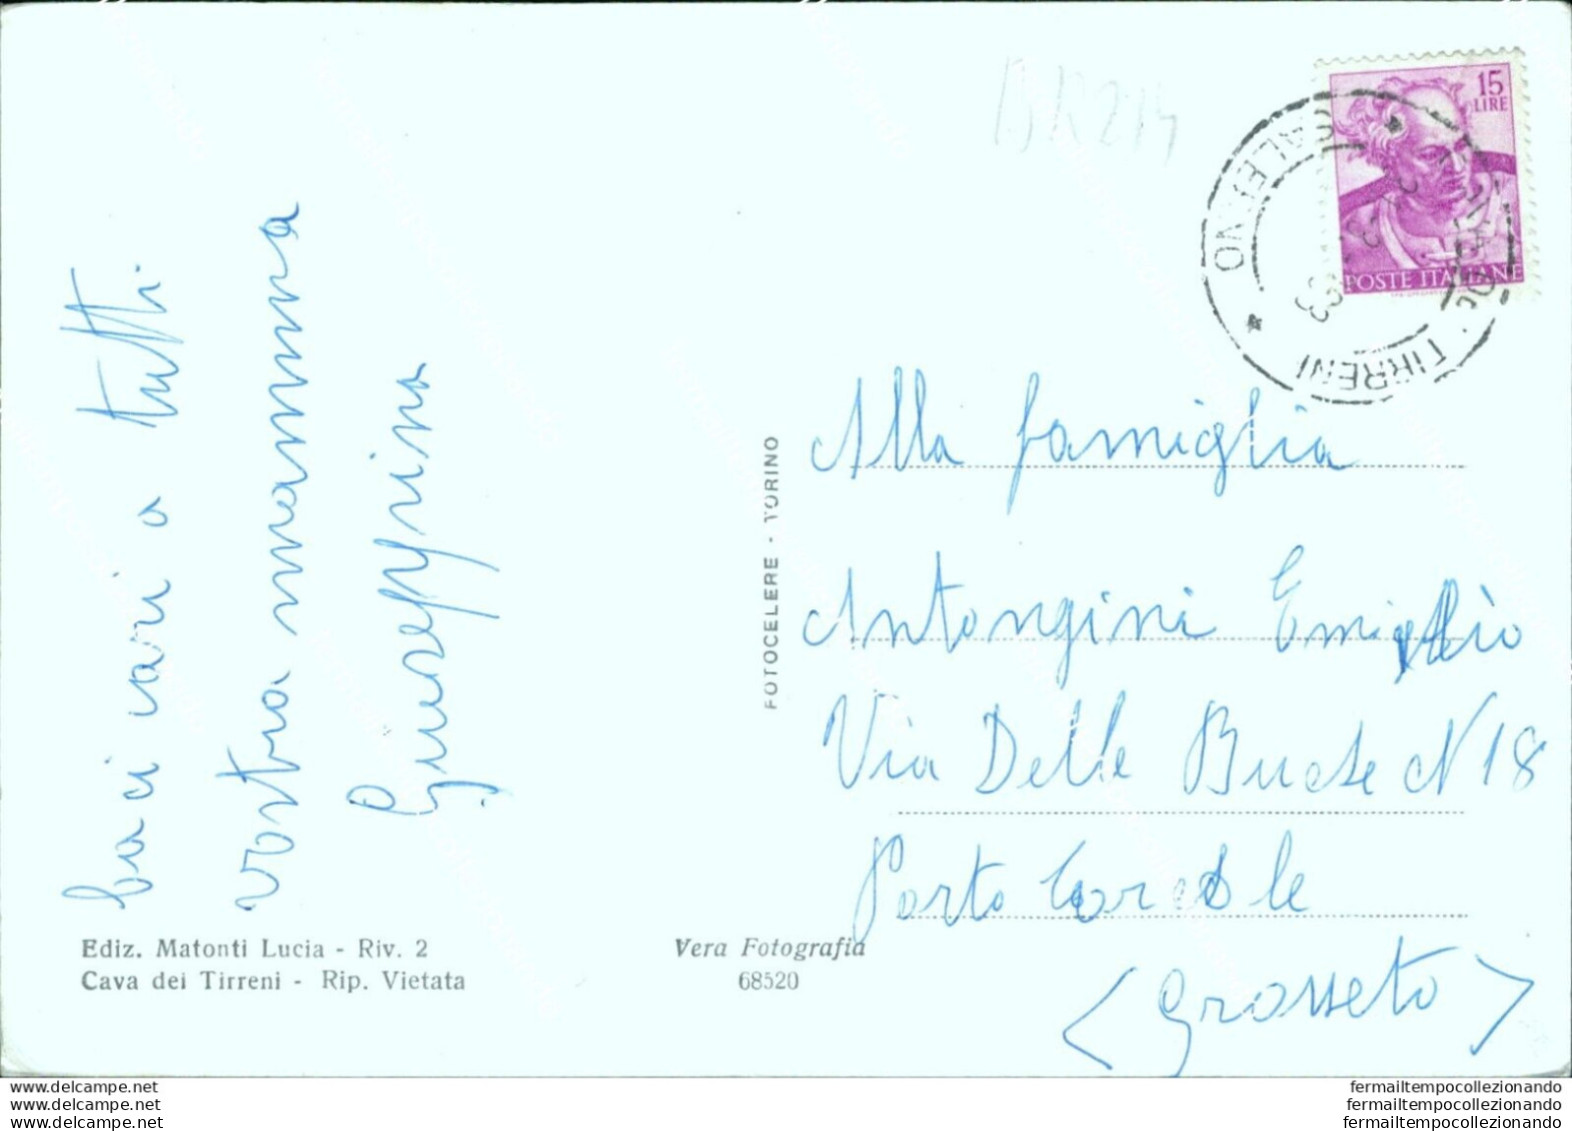 baci cari a tutti
vostra mamma
Giuseppina
Ediz. Matonti Lucia - Riv. 2
Cava dei Tirreni - Rip. Vietata
FOTOCELERE - TORINO
Vera Fotografia
68520
BR214
15
LIRE
POSTE ITALIANE
SALERNO
TIRRENI
Alla famiglia
Antongini Emiglio
Via Delle Buche N 18
Porto
(Grosseto)
www.delcampe.net
www.delcampe.net
www.delcampe.net
fermailtempocollezionando
fermailtempocollezionando
fermailtempocollezionando